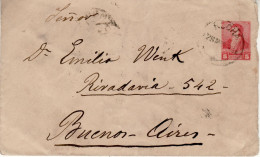 Señor
Dr Emilio Wink
Rivadavia - 542 -
Buenos - Aires -